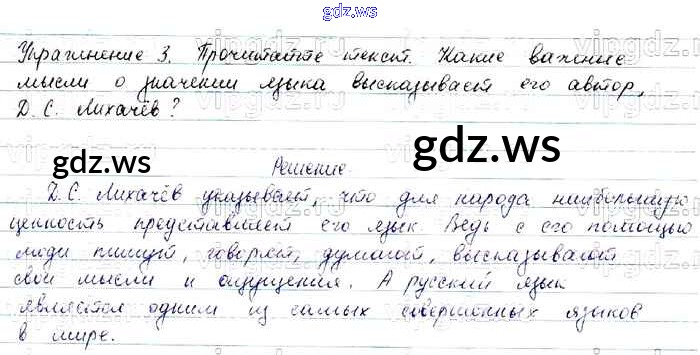 gdz.ws
Упражнение 3. Прочитайте текст. Какие важные
мысли о значении языка высказывает его автор,
Д. С. Лихачёв?
gdz.ws
gdz.ws
Решение.
Д. С. Лихачёв указывает, что для народа наибольшую
ценность представляет его язык. Ведь с его помощью
люди пишут, говорят, думают, высказывают
свои мысли и ощущения. А русский язык
является одним из самых совершенных языков
в мире.